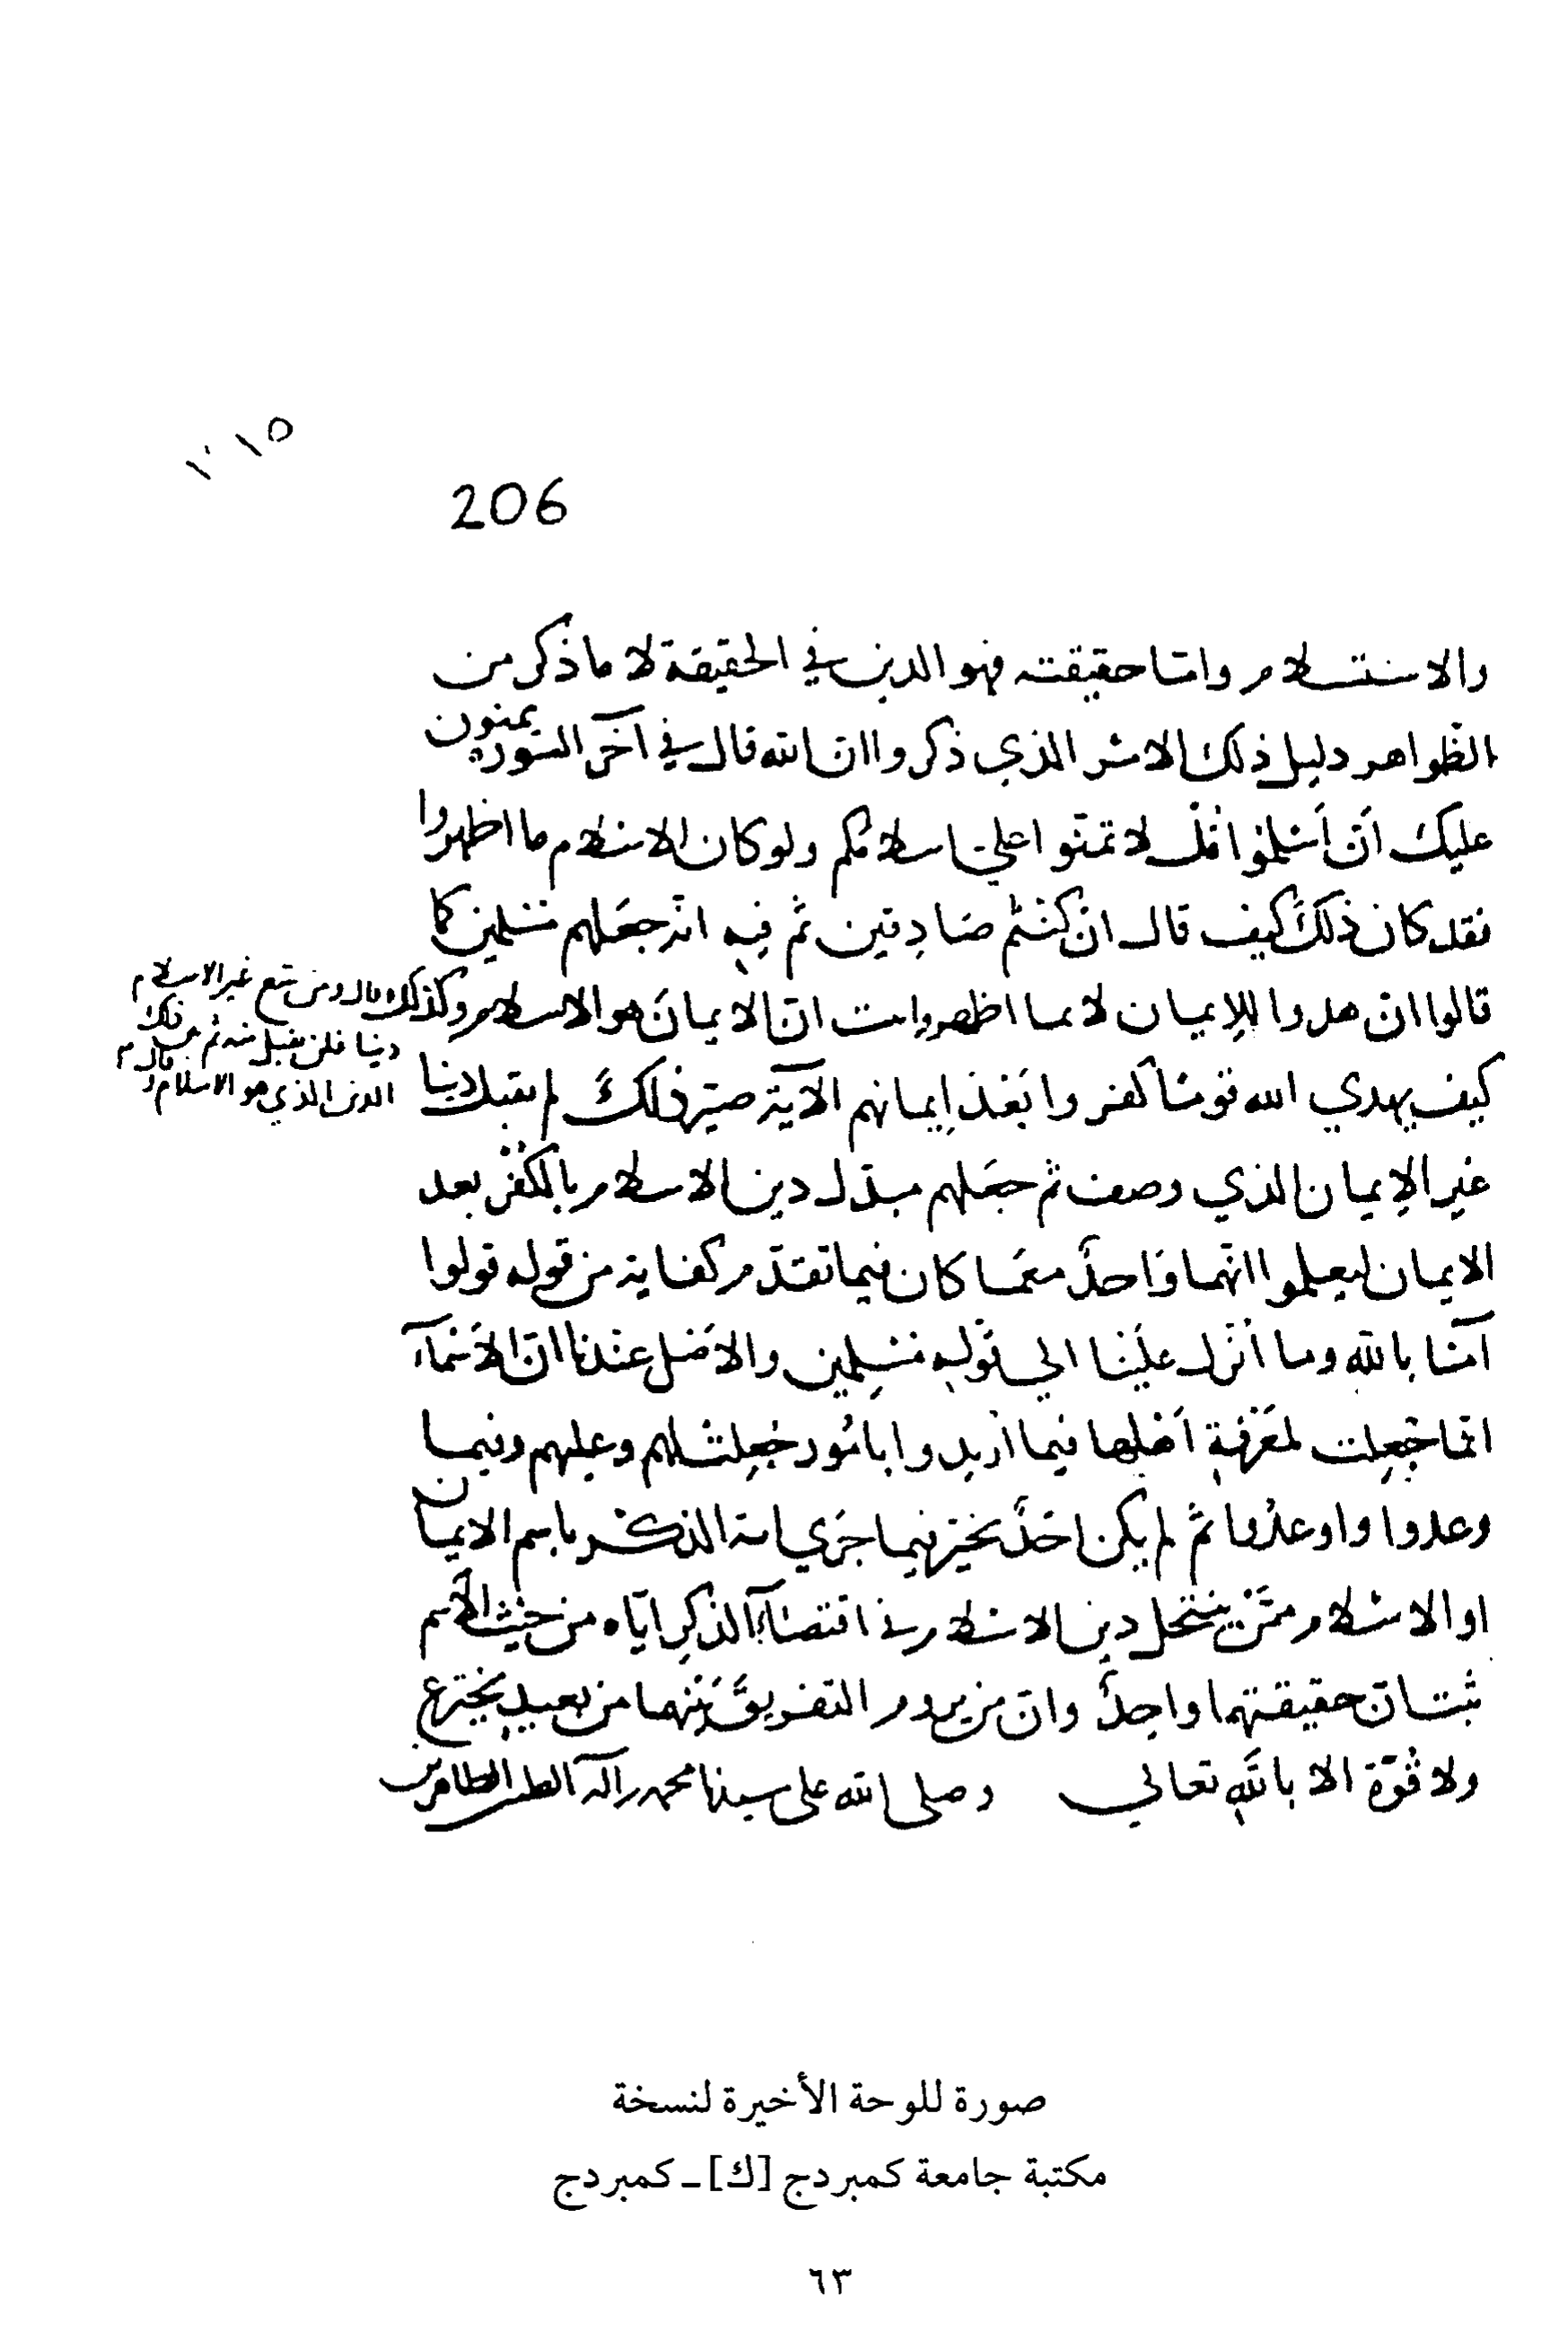 206
والاستسلام واما حقيقته فهو الدين في الحقيقة لا ما ذكر من
الظواهر دليل ذلك الامر الذي ذكروا ان الله قال في آخر السورة يمنون
عليك أن أسلموا قل لا تمنوا علي اسلامكم ولو كان الاسلام ما اظهروا
فقد كان ذلك كيف قال ان كنتم صادقين ثم فيه انه جعلهم مسلمين كما
قالوا ان هدوا للإيمان لا بما اظهروا ان الايمان هو الاسلام وكذلك قال ومن يتبع غير الاسلام
دينا فلن يقبل منه ثم
الدين الذي هو الاسلام
كيف يهدي الله قوما كفروا بعد إيمانهم الآية صير ذلك لم يقبل دينا
غير الإيمان الذي وصف ثم جعلهم مبدل دين الاسلام بالكفر بعد
الايمان ليعلموا انهما واحد معما كان فيما تقدم كفاية من قوله قولوا
آمنا بالله وما أنزل علينا الي قوله مسلمين والاصل عندنا ان الأسماء
انما جعلت لمعرفة أهلها فيما اريدوا بامور جعلت لهم وعليهم وفيما
وعدوا واوعدوا ثم لم يكن احد يخير فيما جري الذكر باسم الايمان
او الاسلام ممن ينتحل دين الاسلام في اقتضاء الذكر اياه من حيث الاسم
ثبت ان حقيقتهما واحد وان من يروم التفريق بينهما من بعيد يخترع
ولا قوة الا بالله تعالي وصلى الله على سيدنا محمد وآله الطاهرين
صورة للوحة الأخيرة لنسخة
مكتبة جامعة كمبردج [ك] ـ كمبردج
٦٣